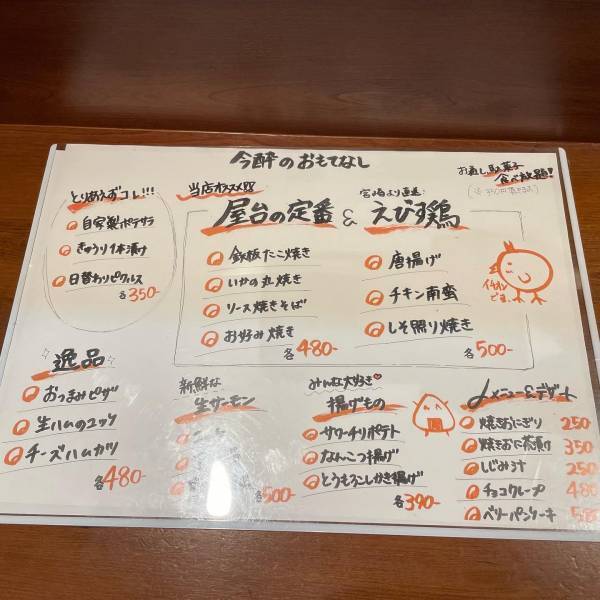 今酔のおもてなし
とりあえずコレ!!!
自家製ポテサラ
きゅうり1本漬け
日替わりピクルス
各350-
当店オススメ
宮崎より直送!
屋台の定番 & えびす鶏
鉄板たこ焼き
いかの丸焼き
ソース焼きそば
お好み焼き
各480-
唐揚げ
チキン南蛮
しそ照り焼き
各500-
お通し駄菓子
食べ放題!!
逸品
おつまみピザ
生ハムのユッケ
チーズハムカツ
各480-
新鮮な
生サーモン
各500-
みんな大好き
揚げもの
サワーチリポテト
なんこつ揚げ
とうもろこしかき揚げ
各390-
〆メニュー&デザート
焼きおにぎり 250
焼きおに茶漬け 350
しじみ汁 250
チョコクレープ 480
ベリーパンケーキ